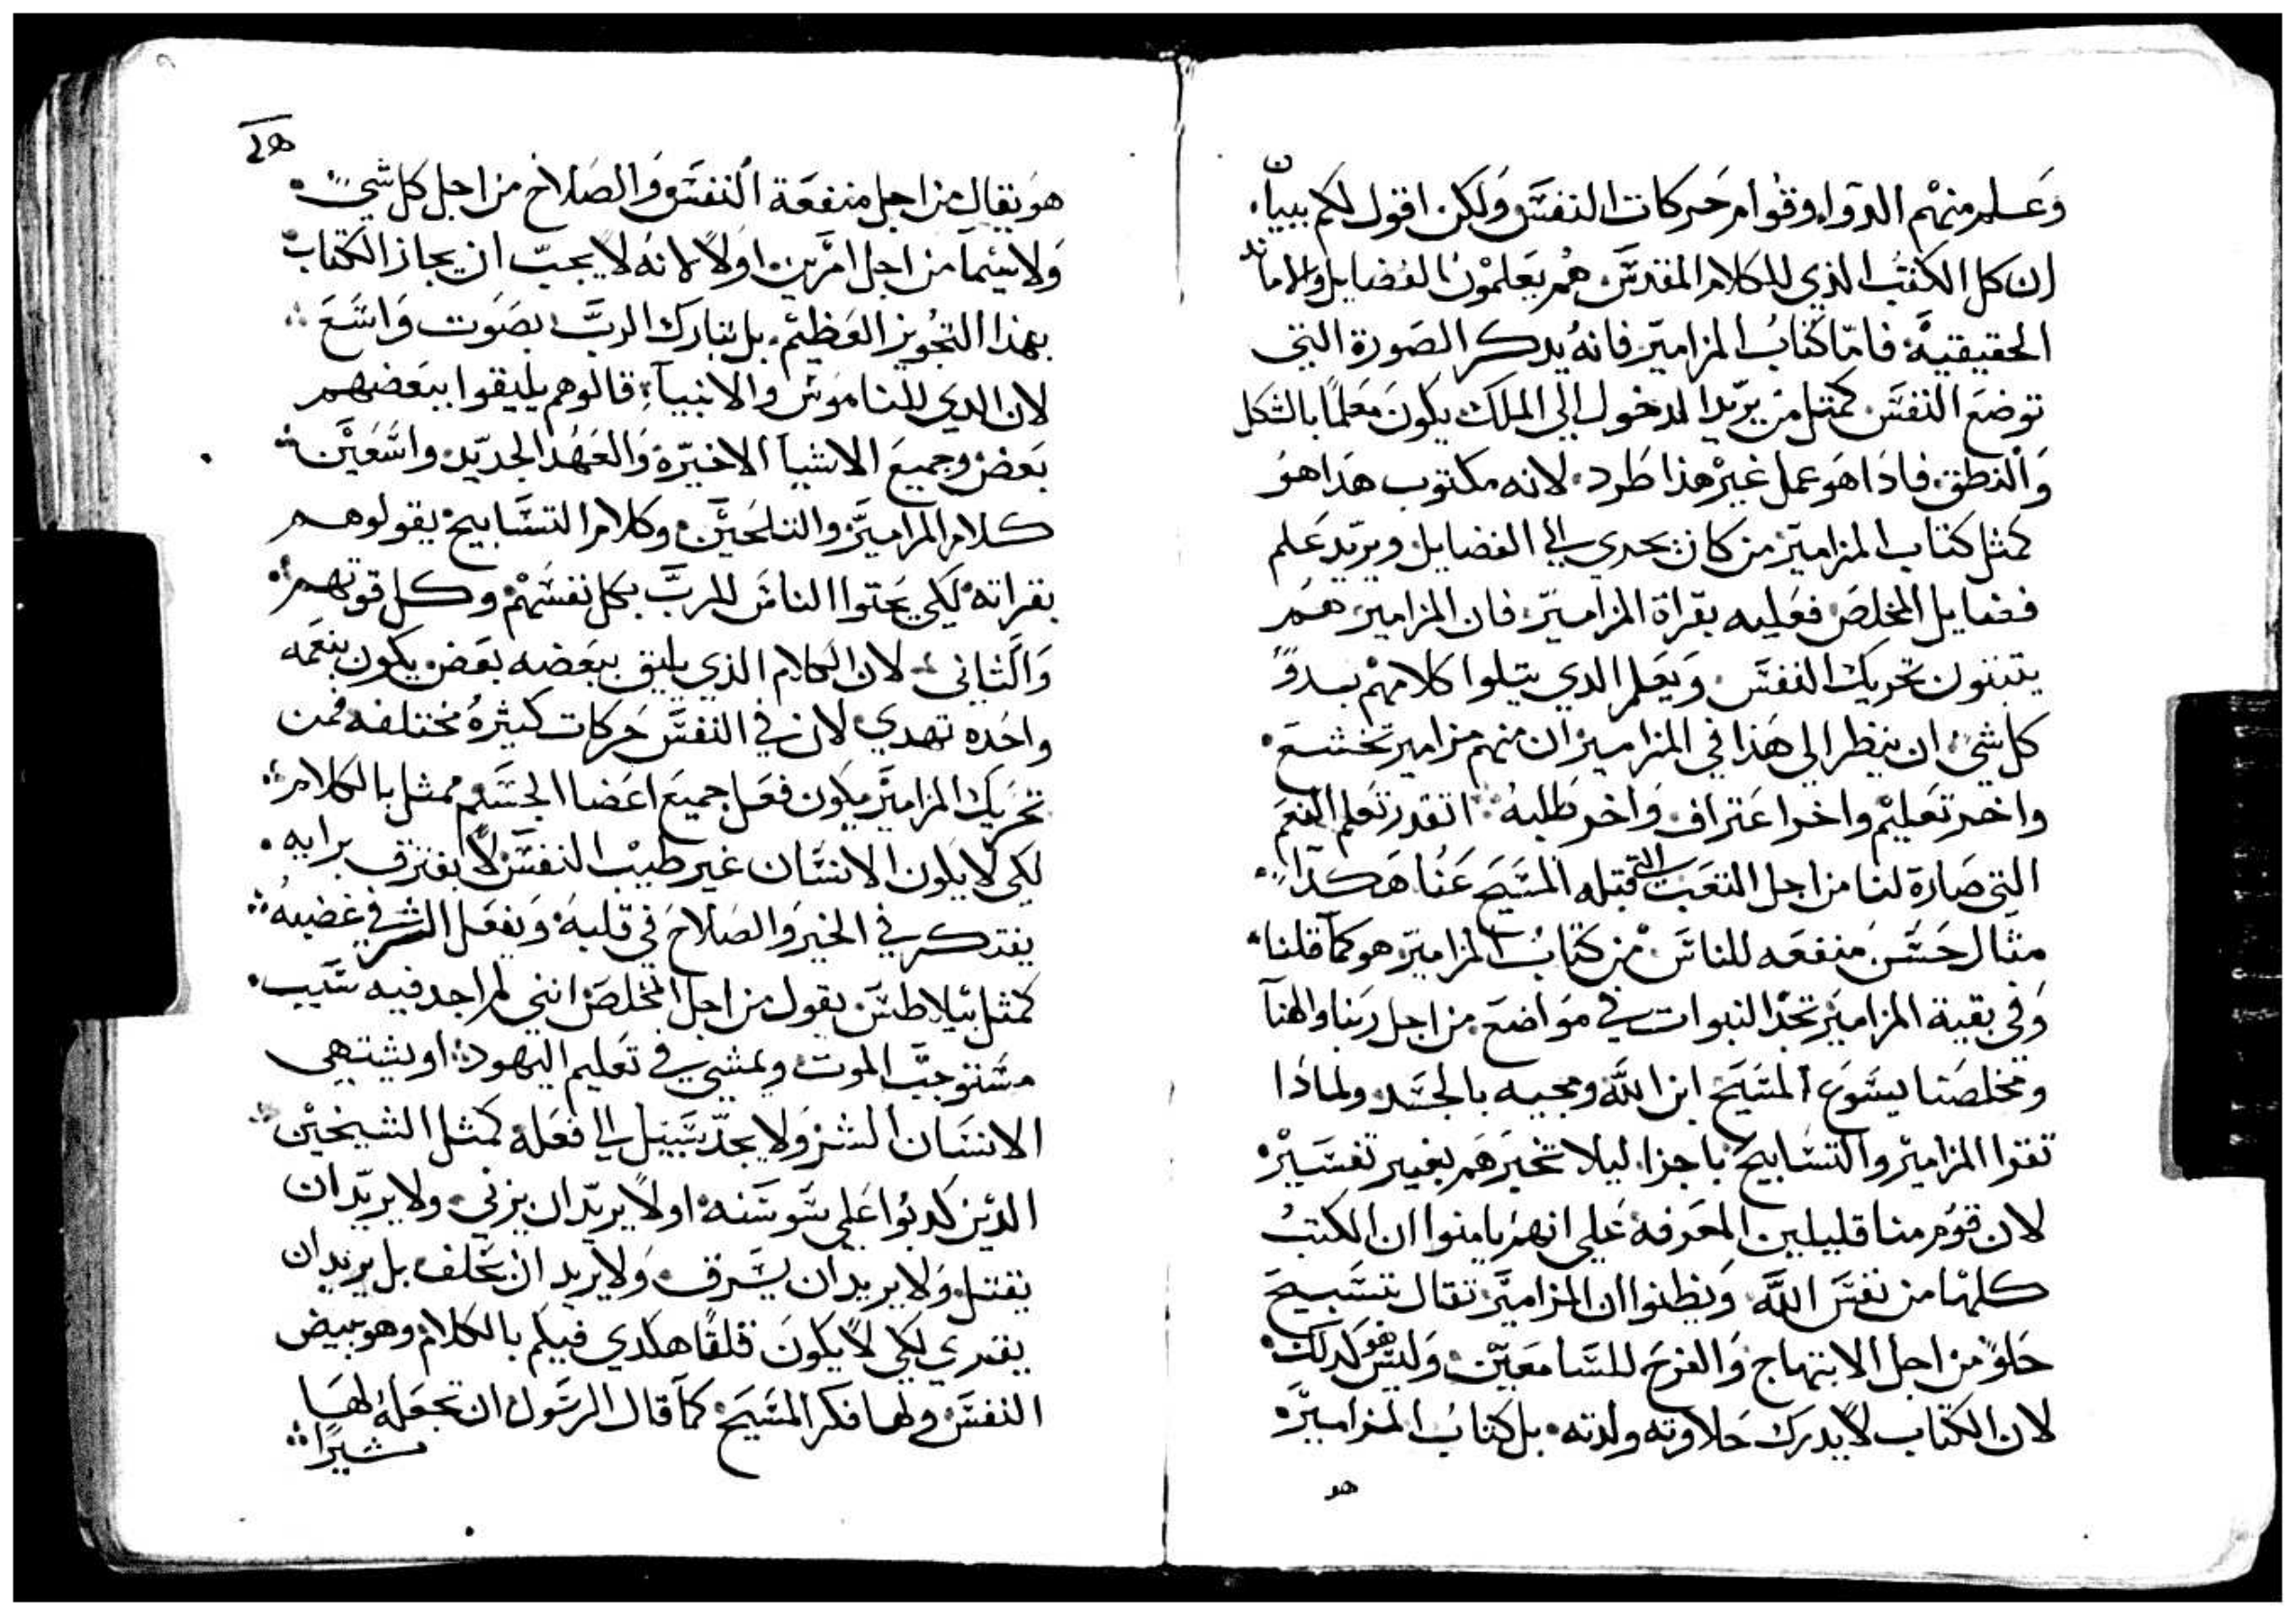 وَعَلم منهم الدوَا وقوام حَركات النفسَ وَلكن اقول لكم بيباً ن
ان كل الكتب الذي للكلام المقدسَ هُم يعَلمُون الفضايل والامانه
الحقيقيَّة فامّا كتابُ المزاميَر فانهُ يدكر الصَورة التي
توضعَ النفسَ كمتل منَ يرّيد الدخول الي الملك يكونَ معَلماً بالشكل
وَالنطق فادَا هوَ عمل غيرَ هذا طَرد لانه مكتوب هدَا هوَ
كمثل كتاب المزاميَر من كان يجري الي الفضايل ويريّد عَلم
فضايل المخلصَ فعَليه بقراة المزاميَر فان المزامير همَ
يتبنون تحريك النفسَ وَيعَلم الدي يتلوا كلامهمْ بدوَ
كل شي ان ينظر الي هَذا في المزاميَر ان منهم مزامير تخشعَ
واخر تعَليمْ واخر اعَتراف وَاخر طَلبه اتقدر تعَلم النعَم
التي صَارة لنا من اجل التعَب التي قبله المسَيحَ عَنا هَكدَا
متَال حَسَن منفعَه للناسَ من كتابُ المزاميَر هو كمآ قلنا
وَفي بقية المزاميَر تجدْ النبوات في موَاضعَ من اجل ربَنا والهنآ
ومخلصَنا ليسَوعَ المسَيحَ ابن اللَّه ومجيه بالجسَد ولمادَا
تقرا المزاميرْ والتسَابيحَ باجزا ليلا تخيرَهم بغير تفسَيرْ
لان قوَم منا قليلين المعَرفة عَلي انهم يامنوا ان الكتبُ
كلهَا من نفسَ اللَّه وَيظنوا ان المزاميَر تقال تسَبيحَ
حَلوَ من اجل الابتهاج وَالفرحَ للسَامعَيّن وَليسَ هو كدلك
لان الكتاب لا يدرك حَلاوته ولدته بل كتابُ المزاميَر
هو
هوَ يقال من اجل منفعَة النفسَ وَالصَلاحَ من اجل كل شي
وَلا سَيما من اجل امرَّين اولاً لانهُ لا يجبّ ان يجاز الكتابْ
بهذا التجويز العَظيمْ بل يتبارك الربّ بصَوت وَاسَعَ
لان الدي للناموَسَ والانبيآ قالوهم يليقوا ببعَضهم
بعَض وجميعَ الاشيا الاخيرّة وَالعَهد الجديّد واسَعَيَن
كلام المزاميَر والتلحَينْ وكلام التسَابيح يقولوهم
بقراته لكي يحَتوا الناسَ للربَّ بكل نفسَهمْ وكل قوتهم
وَالثاني لان الكلام الذي يليق ببعَضه بعَض يكون بنعَمه
واحَده تهدي لان في النفسَ حَركات كثيرهُ مختلفه فمن
تحَريك المزاميَر يكون فعَل جميعَ اعَضا الجسَم ممثل بالكلام
لكي لا يكون الانسَان غير طيب النفسَ لا يفترق برايه
يفتكر في الخيرَ والصَلاحَ في قلبهُ وَيفعَل الشر في غضبهُ
كمثل بيلاطسَ يقول من اجل المخلصَ انني لم اجد فيه سَبب
مسَتوجبّ الموت ويمشي في تعَليم اليهود او يشتهي
الانسَان الشر وَلا يجدّ سَبيل الي فعَله كمثل الشيخيْن
الديْن كدبُوا عَلي سَوسَنه اولاً يريّد ان يزني ولا يريّد ان
يقتل وَلا يريد ان يسَرق وَلا يريد ان يحَلف بل يريد ان
يفتري لكي لا يكونَ قلقاً هكدي فيكم بالكلام وهو يبيض
النفسَ ولها فكر المسَيحَ كمآ قال الرسَول ان تجعَله لهَا
مشيرًا